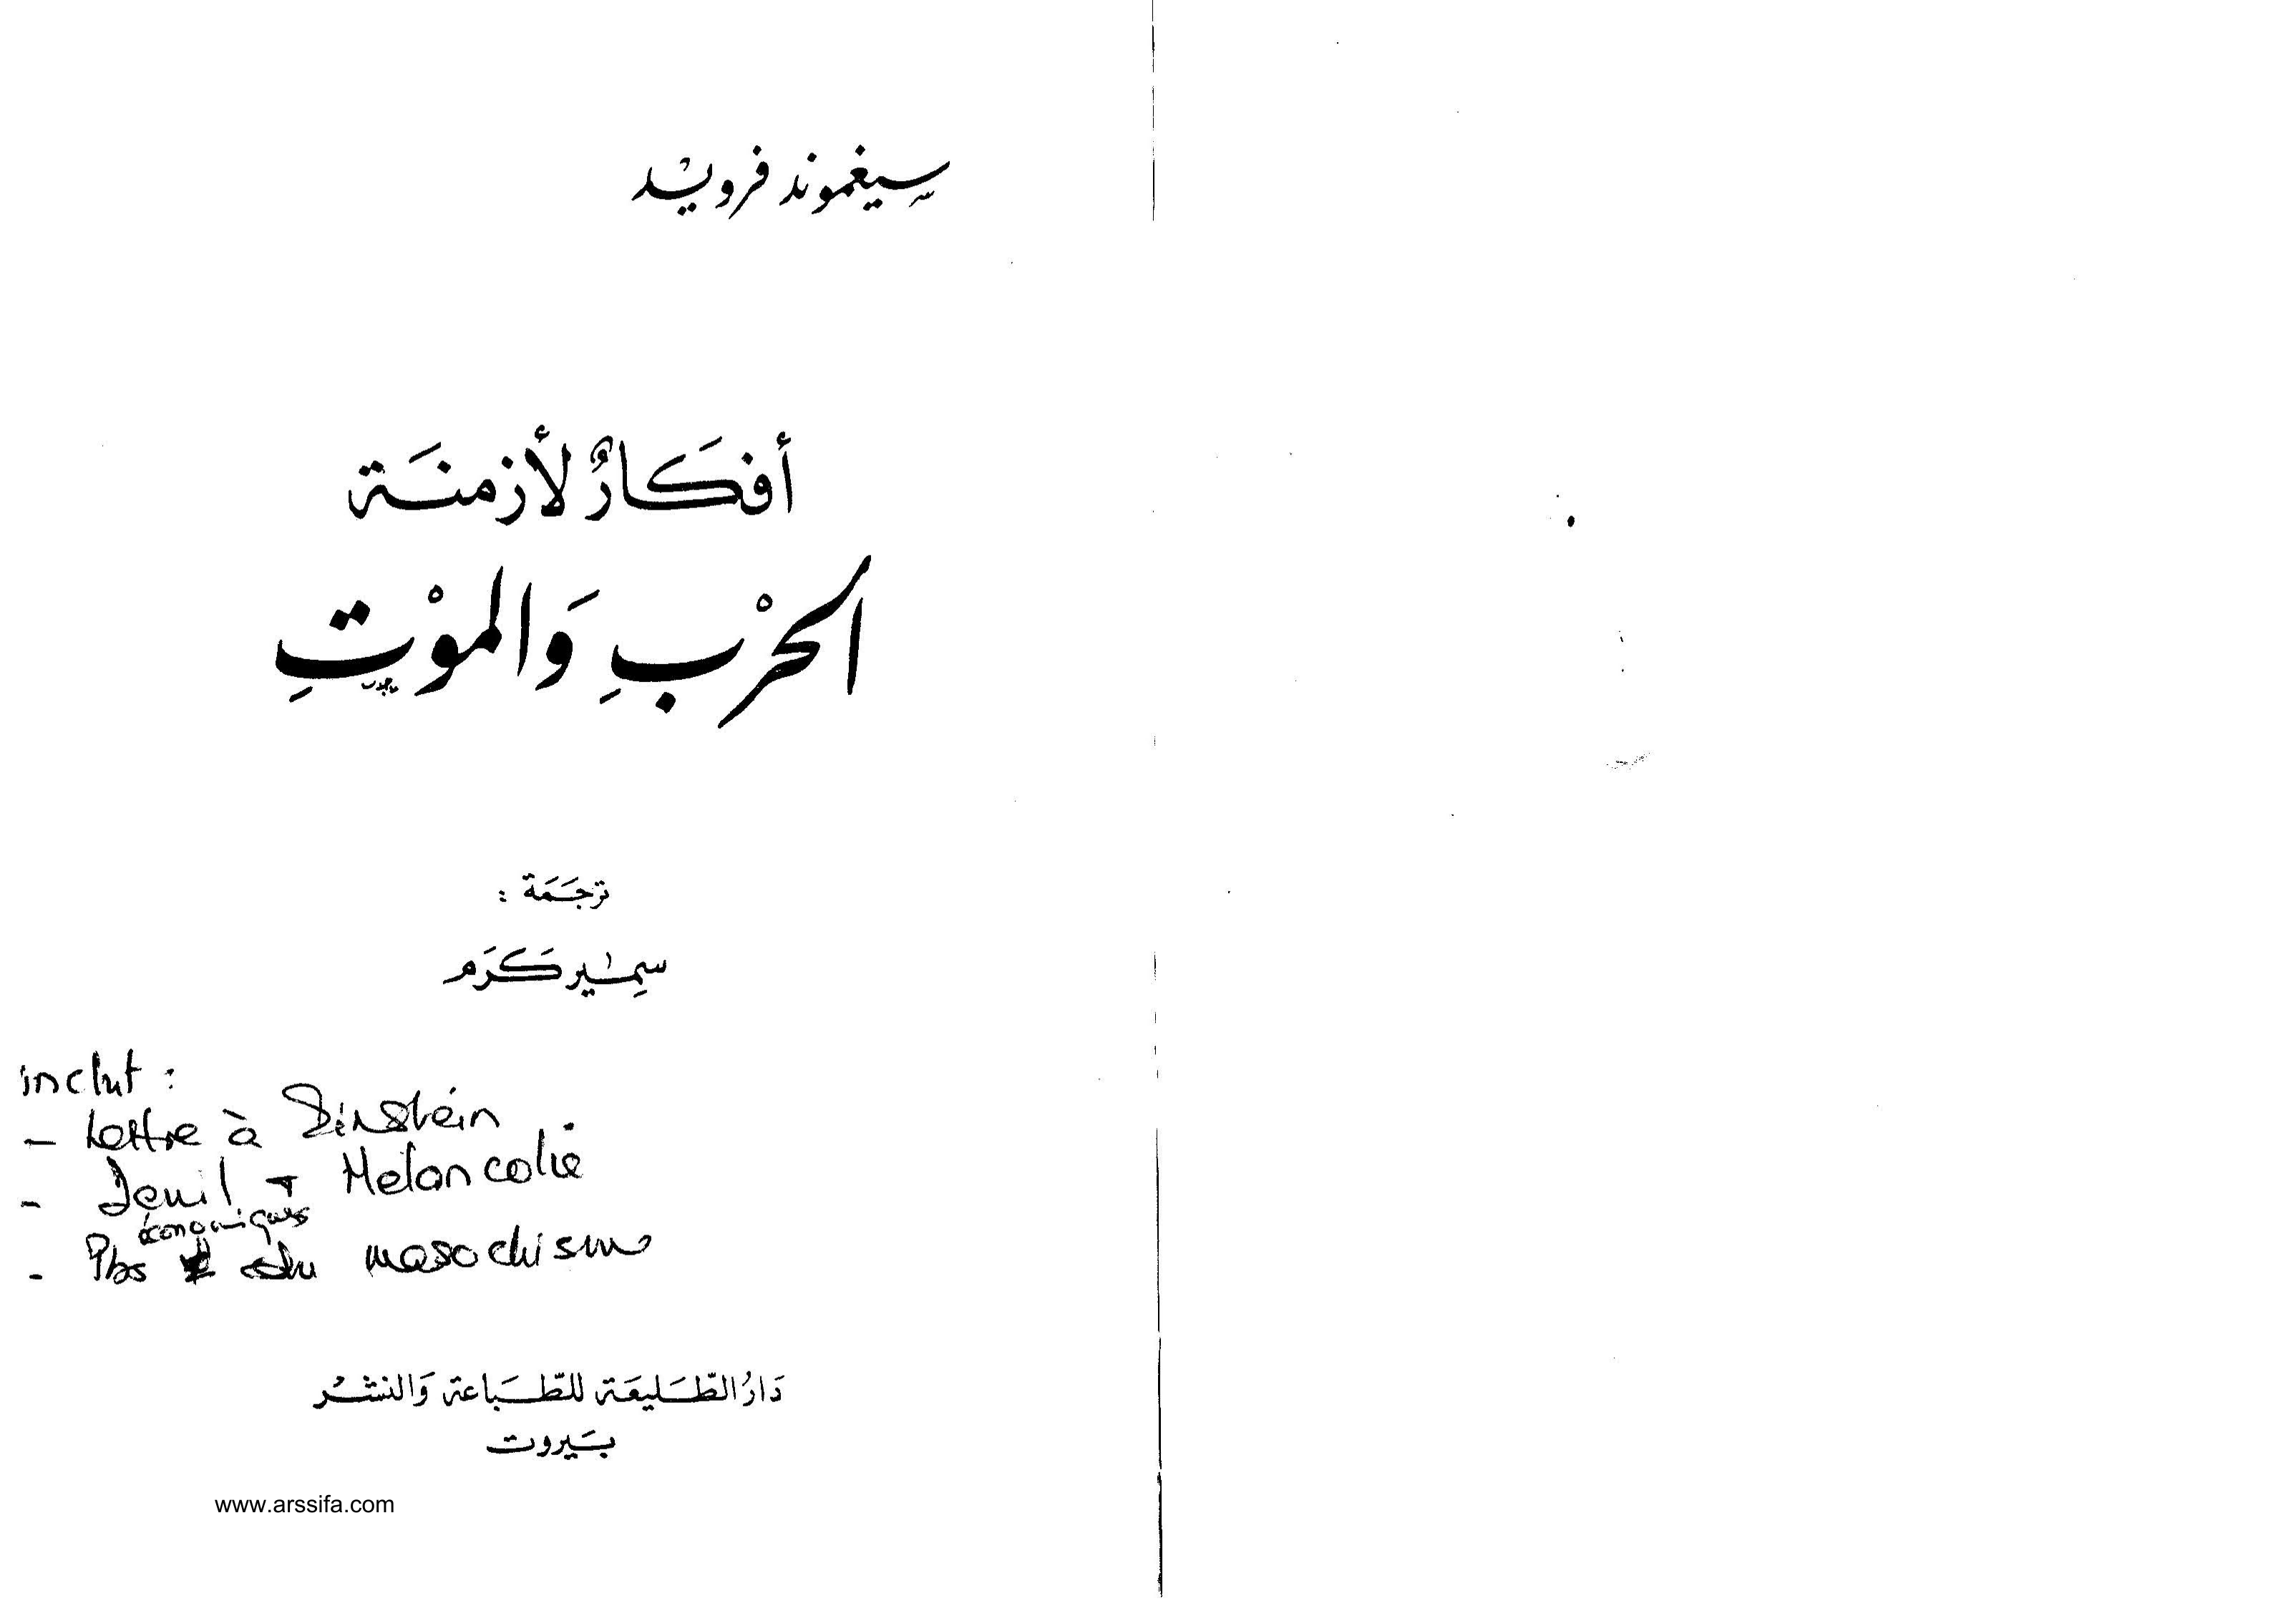 سِيغموند فرويْد
أفكَارٌ لأزمنَة
الحرْبِ وَالموْتِ
ترجَمَة :
سمِير كَرَم
inclut :
- Lettre à Einstein
- Deuil + Mélancolie
économiques
- Pbs du masochisme
دَارُ الطّـَليعَة للطّـبَاعة وَالنشْر
بَيروت
www.arssifa.com